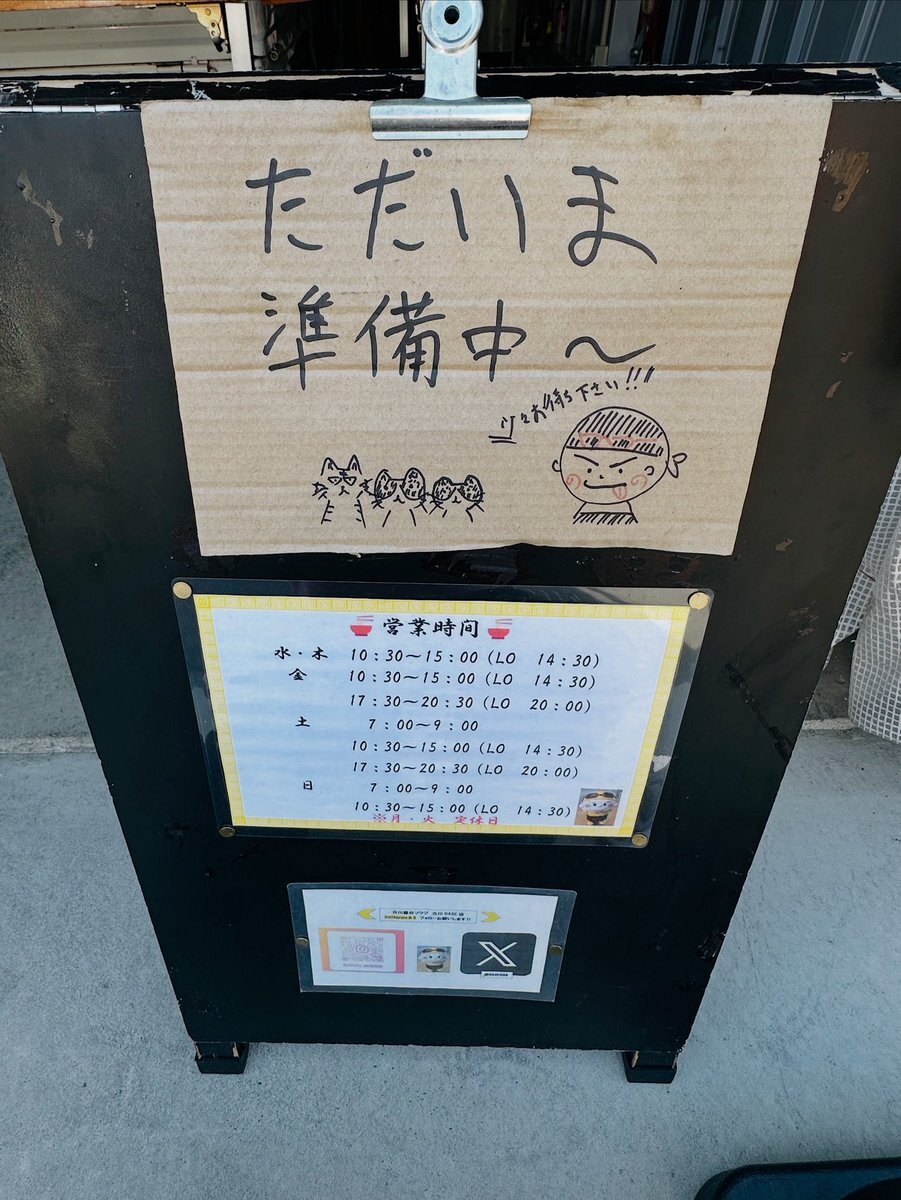 ただいま
準備中〜
少々お待ち下さい!!!
営業時间
水・木 10:30〜15:00(LO 14:30)
金 10:30〜15:00(LO 14:30)
17:30〜20:30(LO 20:00)
土 7:00〜9:00
10:30〜15:00(LO 14:30)
17:30〜20:30(LO 20:00)
日 7:00〜9:00
10:30〜15:00(LO 14:30)
※月・火 定休日
Instagram & X フォローお願いします!!
X